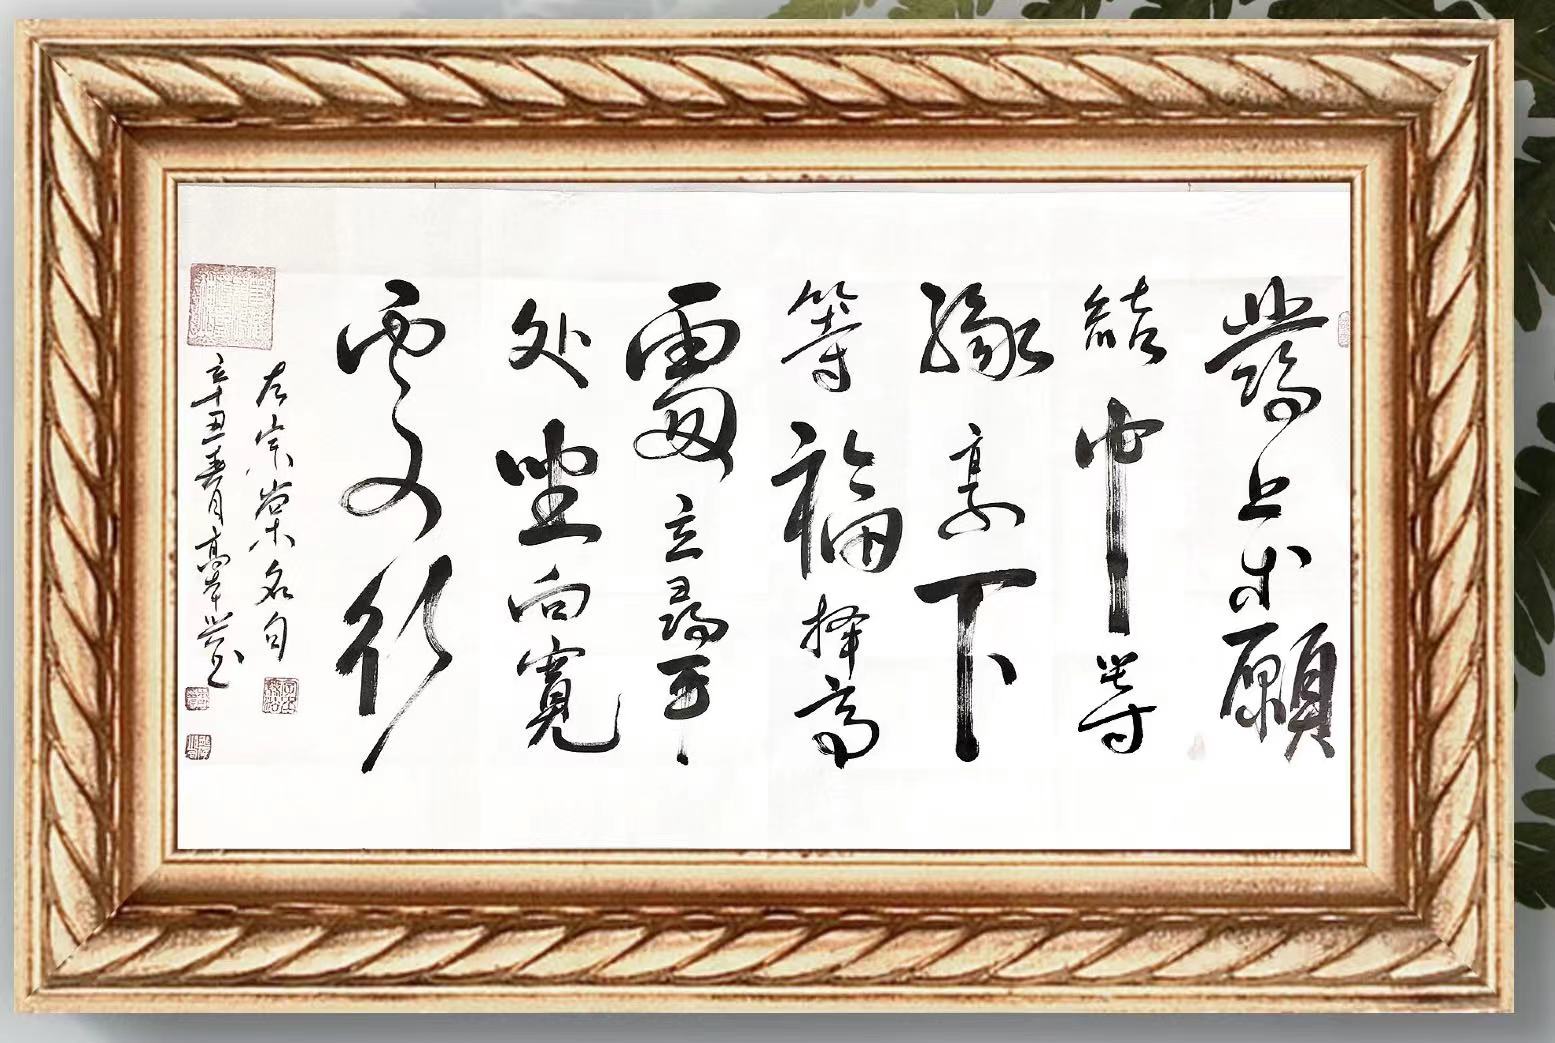 發上等願
結中等
緣享下
等福擇高
處立尋平
处坐向寬
處行
左宗棠名句
辛丑春月高